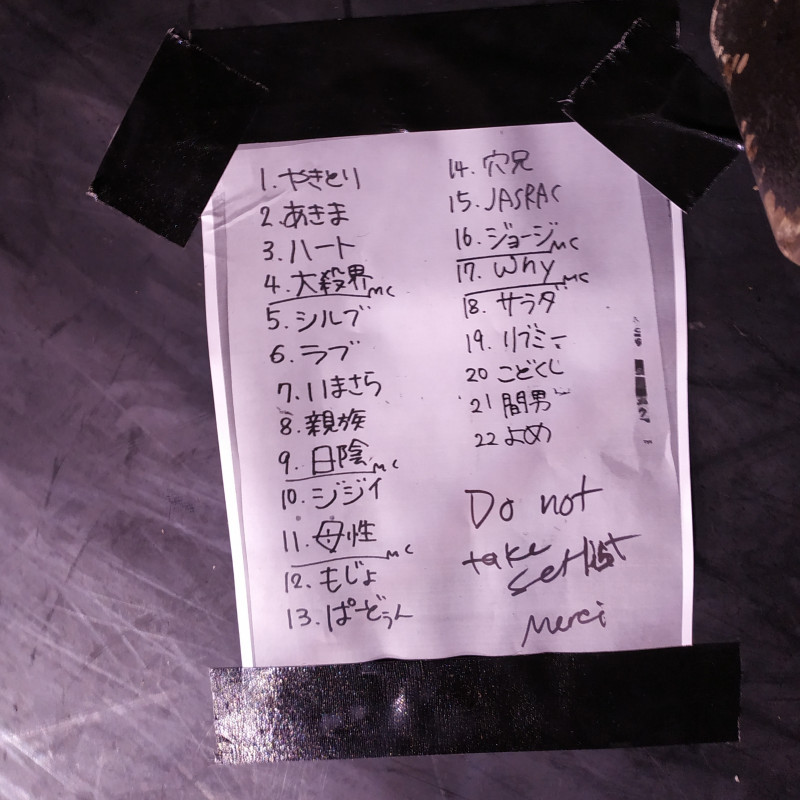 1. やきとり
2. あきま
3. ハート
4. 大殺界 MC
5. シルブ
6. ラブ
7. いまさら
8. 親族
9. 日陰 MC
10. ジジイ
11. 母性 MC
12. もじょ
13. ぱーどぅん
14. 穴兄
15. JASRAC
16. ジョージ MC
17. Why MC
18. サラダ
19. リブミー
20 こどくし
21 間男
22 よめ
Do not
take
setlist
Merci